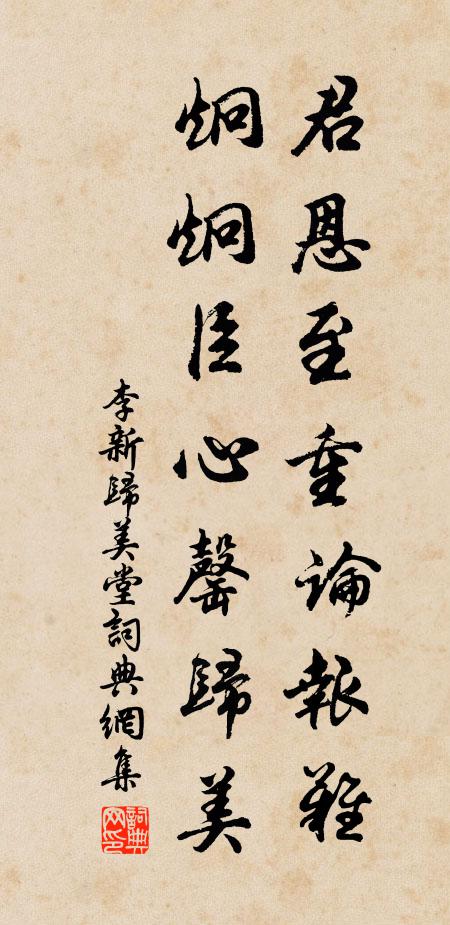 君恩至重論報難
炯炯臣心罄歸美
李新歸美堂詞典網集
詞典网印